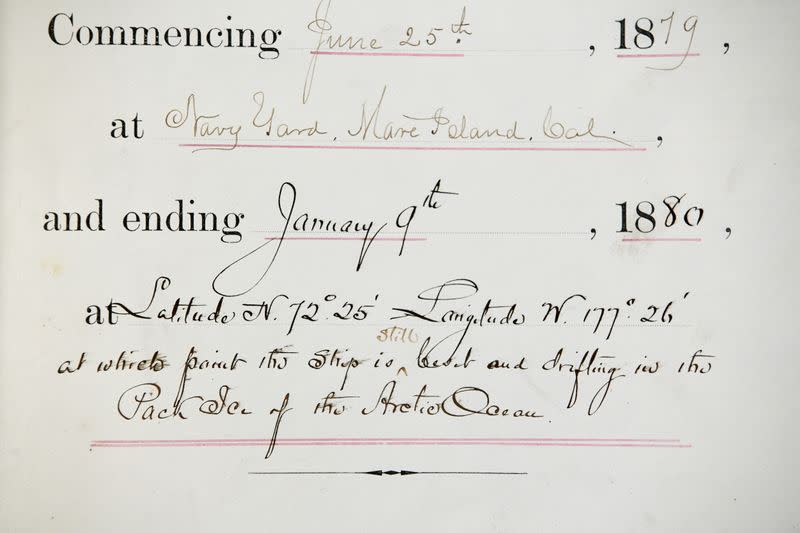 Commencing June 25th, 1879,
at Navy Yard, Mare Island, Cal.,
and ending January 9th, 1880,
at Latitude N. 72° 25' - Longitude W. 177° 26'
at which point the Ship is still beset and drifting in the
Pack Ice of the Arctic Ocean.